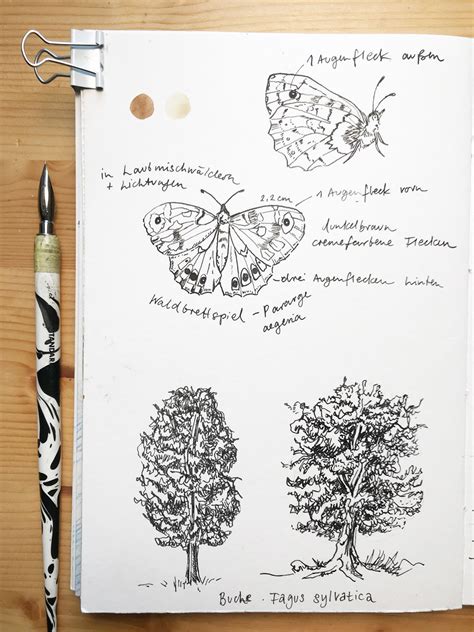 1 Augenfleck außen
in Laubmischwäldern
+ Lichtungen
2,2cm
1 Augenfleck vorn
dunkelbraun
cremefarbene Flecken
drei Augenflecken hinten
Waldbrettspiel - Pararge
aegeria
STANDAR
Buche . Fagus sylvatica